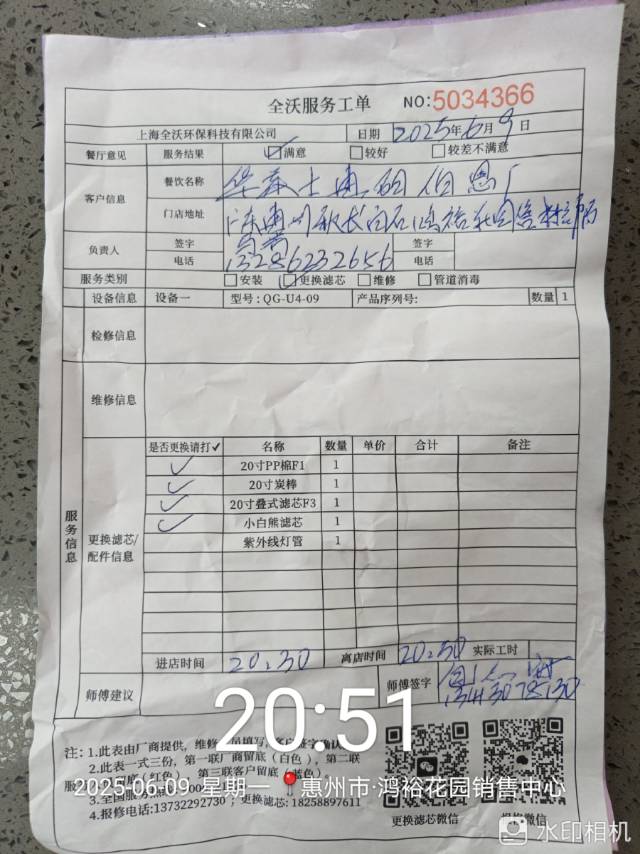 全沃服务工单 NO:5034366
上海全沃环保科技有限公司 日期 2025年6月9日
餐厅意见 服务结果 ☑满意 □较好 □较差不满意
客户信息 餐饮名称
门店地址
负责人 签字 签字
电话 13286232656 电话
服务类别 □安装 ☑更换滤芯 □维修 □管道消毒
设备信息 设备一 型号:QG-U4-09 产品序列号: 数量 1
检修信息
维修信息
服务信息
更换滤芯/配件信息
是否更换请打✓ 名称 数量 单价 合计 备注
✓ 20寸PP棉F1 1
✓ 20寸炭棒 1
✓ 20寸叠式滤芯F3 1
✓ 小白熊滤芯 1
紫外线灯管 1
进店时间 20:30 离店时间 20:50 实际工时
师傅建议 师傅签字
20:51
注: 1.此表由厂商提供，维修
2.此表一式三份，第一联厂商留底(白色)，第二联
(红色) 第三联客户留底(蓝色)。
2025-06-09 星期一 惠州市·鸿裕花园销售中心
3.全国服
4.报修电话:13732292730；更换滤芯:18258897611
更换滤芯微信 微信
水印相机